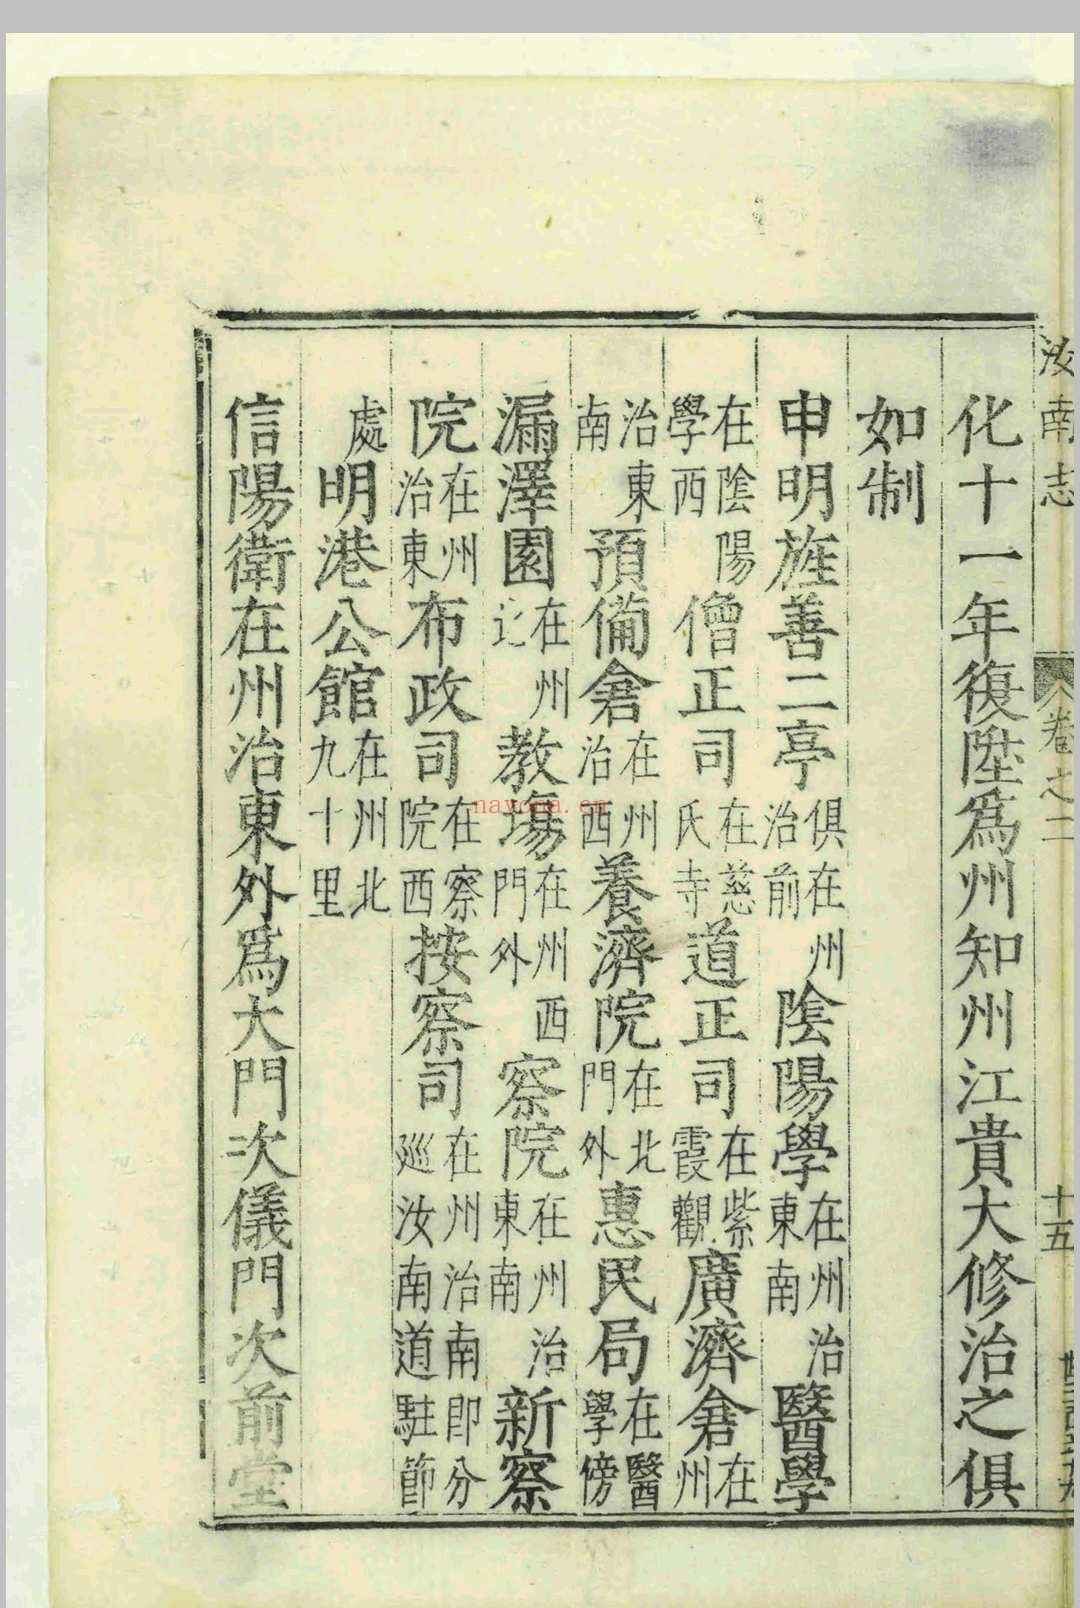 汝南志
卷之二
十五
化十一年復陞爲州知州江貴大修治之俱
如制
申明旌善二亭俱在州治前陰陽學在州治東南醫學
在陰陽學西僧正司在慈氏寺道正司在紫霞觀廣濟倉在州
治東南預備倉在州治西養濟院在北門外惠民局在醫學傍
漏澤園在州教場在州西門外察院在州治東南新察
院在州治東布政司在察院西按察司在州治南即分巡汝南道駐節
處明港公館在州北九十里
信陽衛在州治東外爲大門次儀門次前堂
nayona.cn